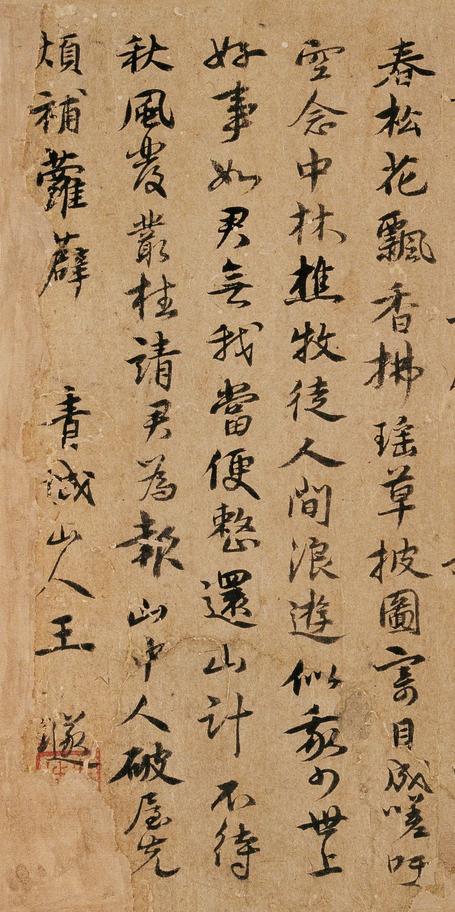 春松花飄香拂瑤草披圖寓目成嗟吁
空念中林樵牧徒人間浪遊似我少世上
好事如君無我當便整還山計不待
秋風發叢桂請君為報山中人破屋先
煩補蘿薜
責誠山人王